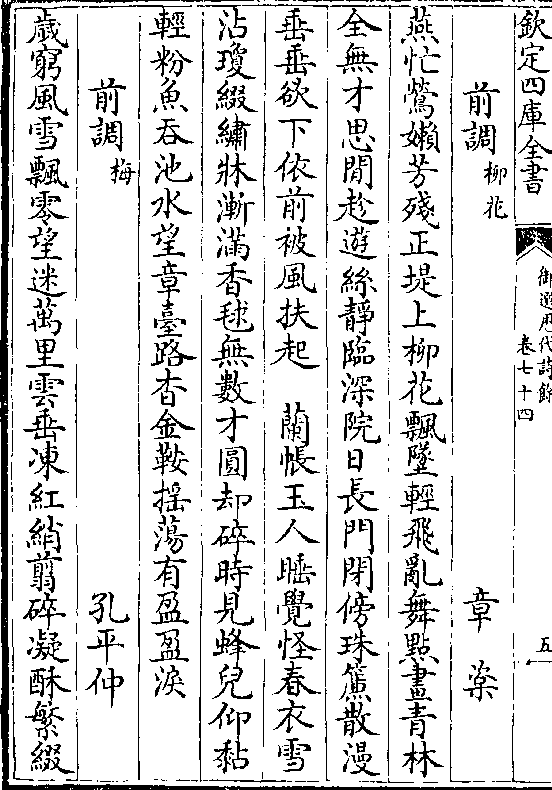 欽定四庫全書
御選歷代詩餘
卷七十四
五
前調柳花 章楶
燕忙鶯嬾芳殘正堤上柳花飄墜輕飛亂舞點畫青林
全無才思閒趁遊絲靜臨深院日長門閉傍珠簾散漫
垂垂欲下依前被風扶起 蘭帳玉人睡覺怪春衣雪
沾瓊綴繡牀漸滿香毬無數才圓却碎時見蜂兒仰黏
輕粉魚吞池水望章臺路杳金鞍揺蕩有盈盈淚
前調梅 孔平仲
歲窮風雪飄零望迷萬里雲垂凍紅綃翦碎凝酥繁綴